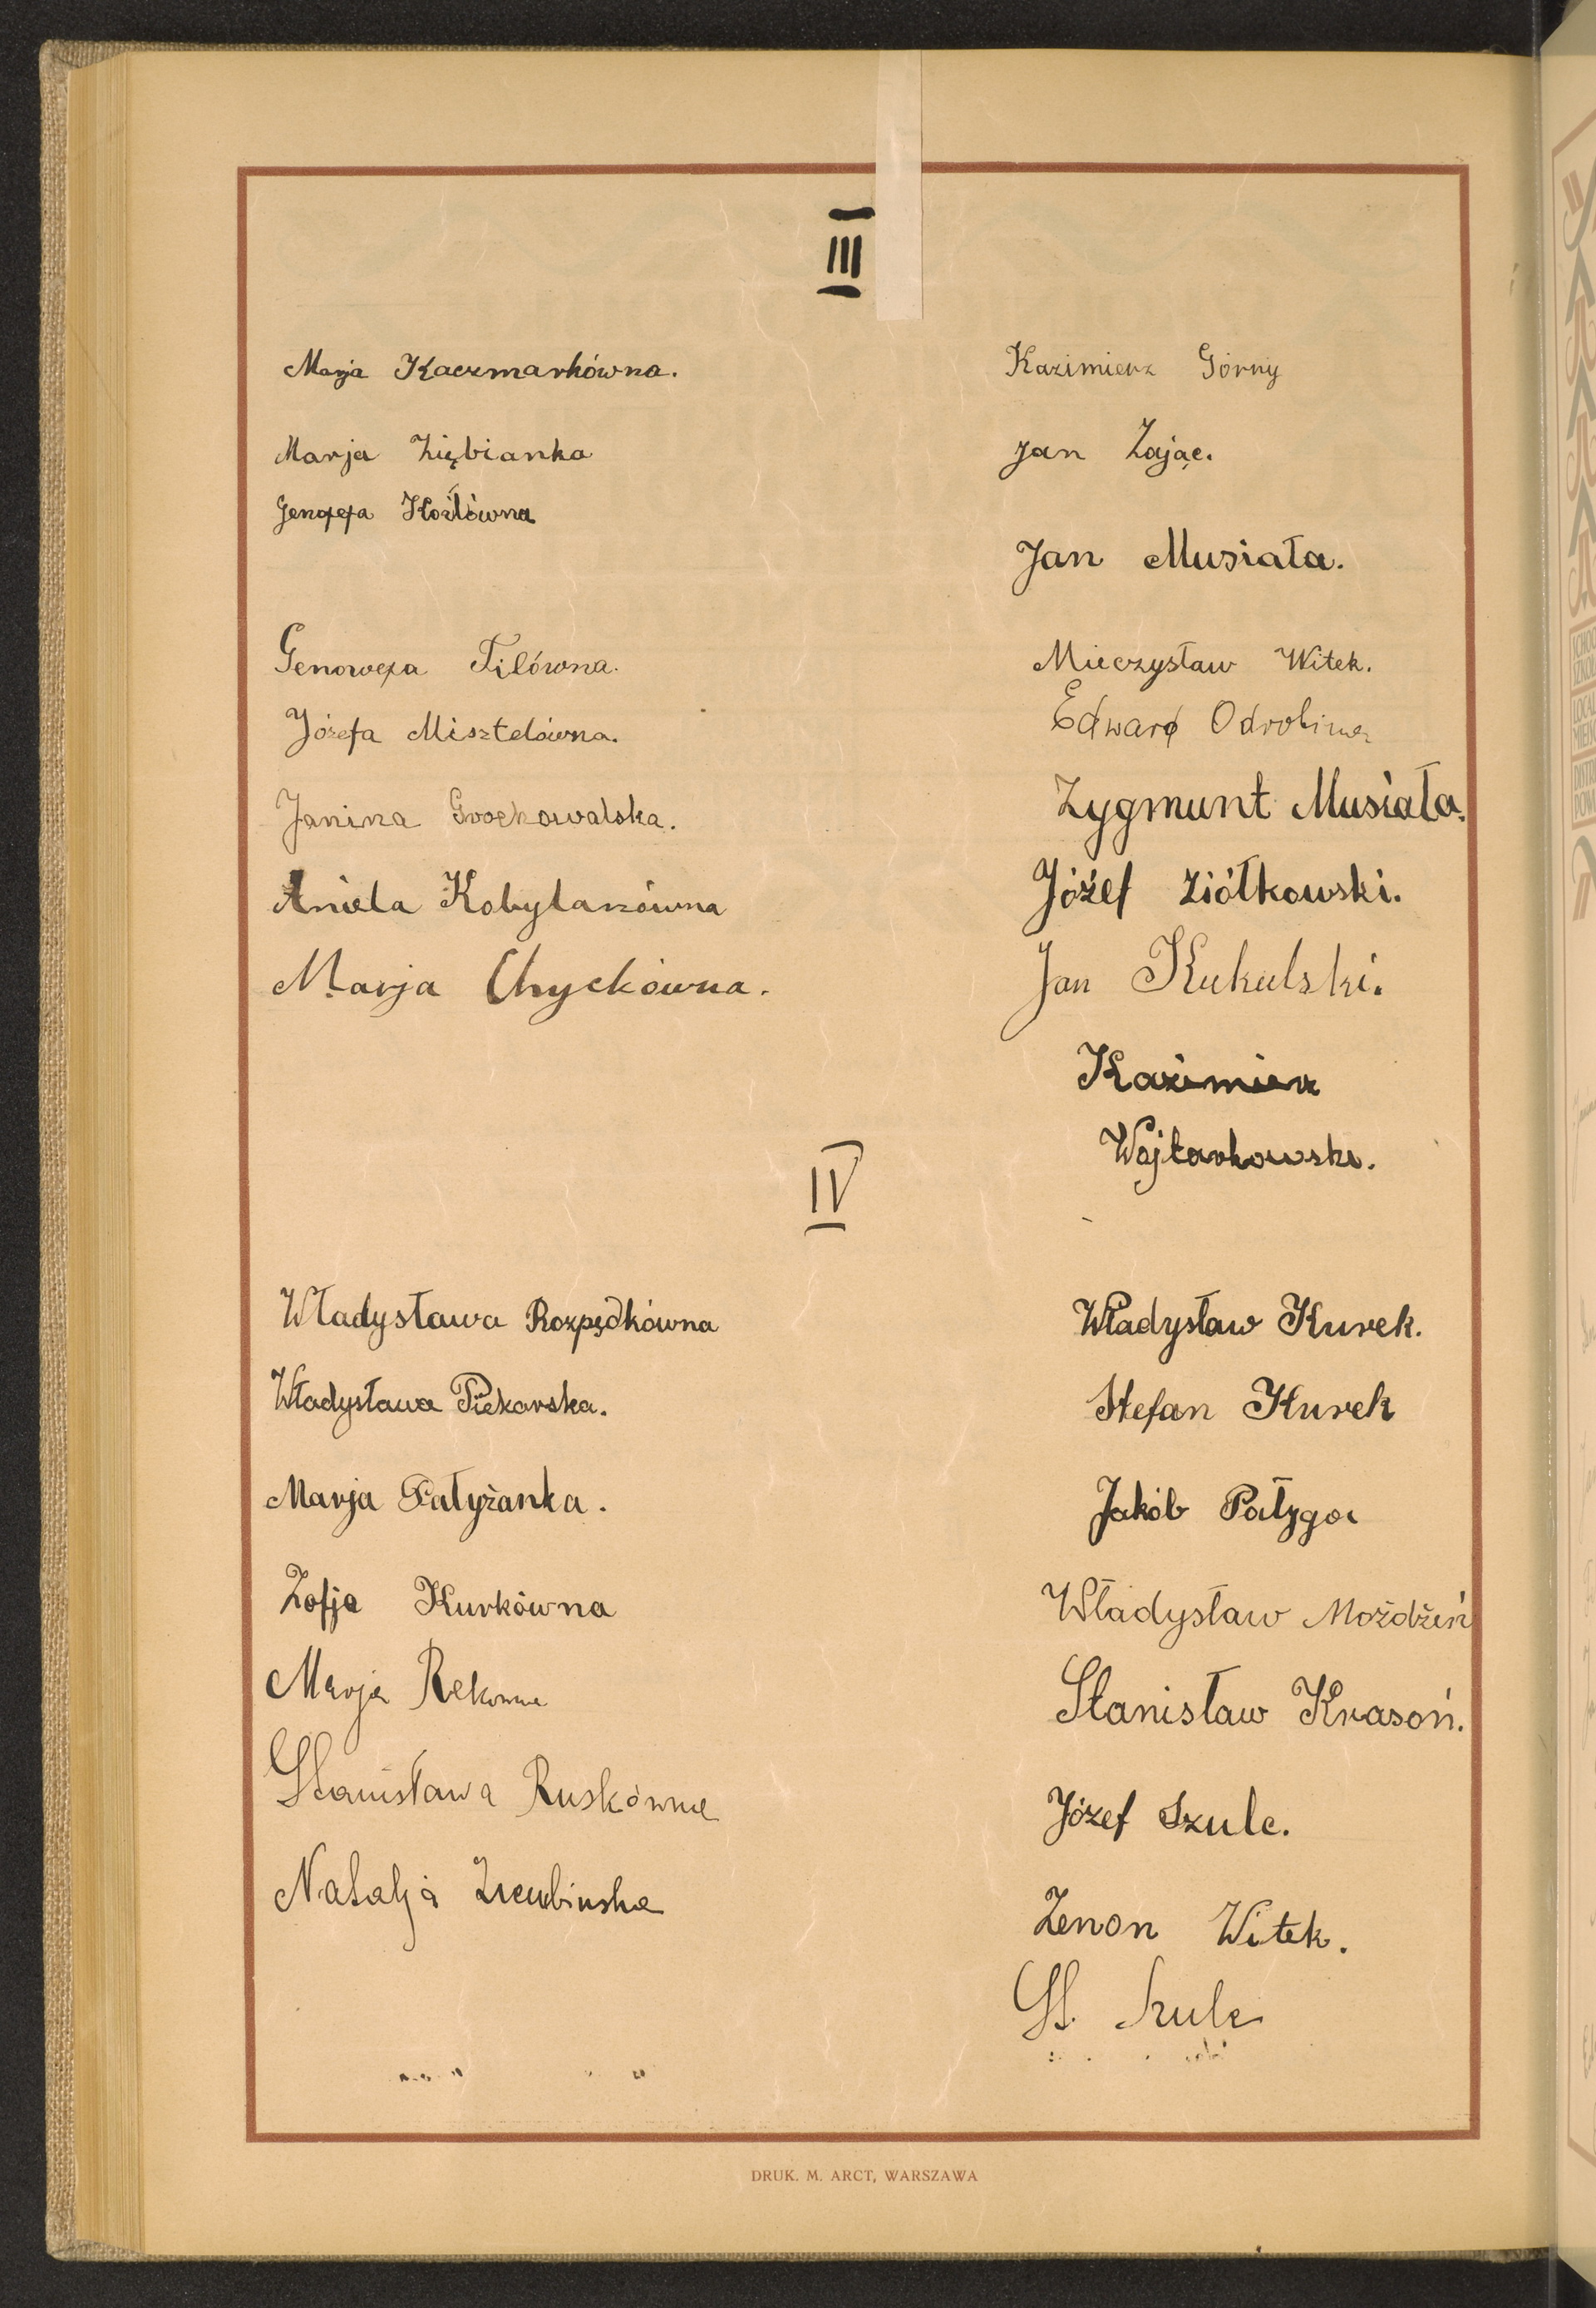 III
Marja Kaczmarkówna.
Marja Ziębianka
Genowefa Koźlówna
Genowefa Filówna.
Józefa Misztelówna.
Janina Grochowalska.
Aniela Kobylanówna
Marja Chyckówna.
Kazimierz Górny
Jan Zając.
Jan Musiała.
Mieczysław Witek.
Edward Odrobina
Zygmunt Musiała.
Józef Ziółkowski.
Jan Kukulski.
Kazimierz
Wojtarkowski.
IV
Władysława Rozpędkówna
Władysława Piekarska.
Marja Pałyżanka.
Zofja Kurkówna
Marja
Stanisława Ruskówna
Natalja
Władysław Kurek.
Stefan Kurek
Jakób Pałyga
Władysław Moździeń
Stanisław Krasoń.
Józef Szulc.
Zenon Witek.
St. Szulc
DRUK. M. ARCT, WARSZAWA